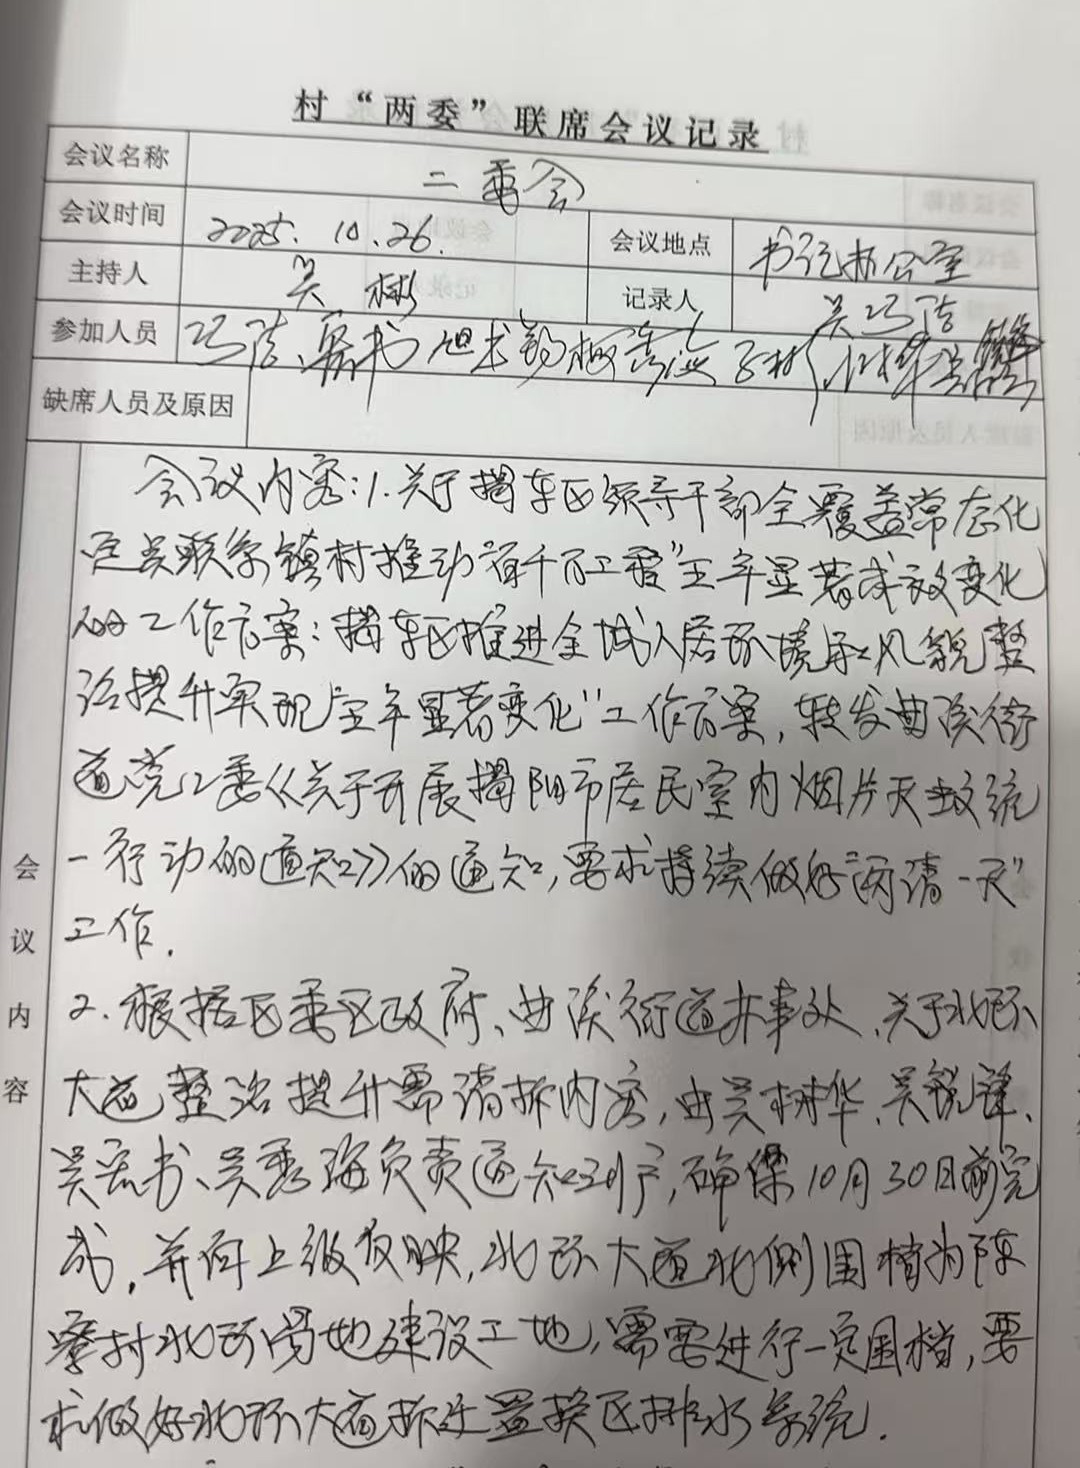 村“两委”联席会议记录
会议名称 二委会
会议时间 2025.10.26. 会议地点 书记办公室
主持人 吴彬 记录人 吴巧浩
参加人员
缺席人员及原因
会议内容
会议内容:1.关于揭东区领导干部全覆盖常态化
定点联系镇村推动“百千万工程”三年显著成效变化
的工作方案:揭东区推进全域人居环境和风貌整
治提升实现“三年显著变化”工作方案,转发曲溪街
道党工委《关于开展揭阳市居民室内烟片灭蚊统
一行动的通知》的通知,要求持续做好“两清一灭”
工作.
2.根据区委区政府、曲溪街道办事处、关于北环
大道整治提升需清拆内容,由吴树华、吴锐锋、
吴 书、吴秀海负责通知到户,确保10月30日前完
成,并向上级反映,北环大道北侧围档为陈
寮村北环 地建设工地,需要进行一定围档,要
求做好北环大道拆迁置换区排水系统.